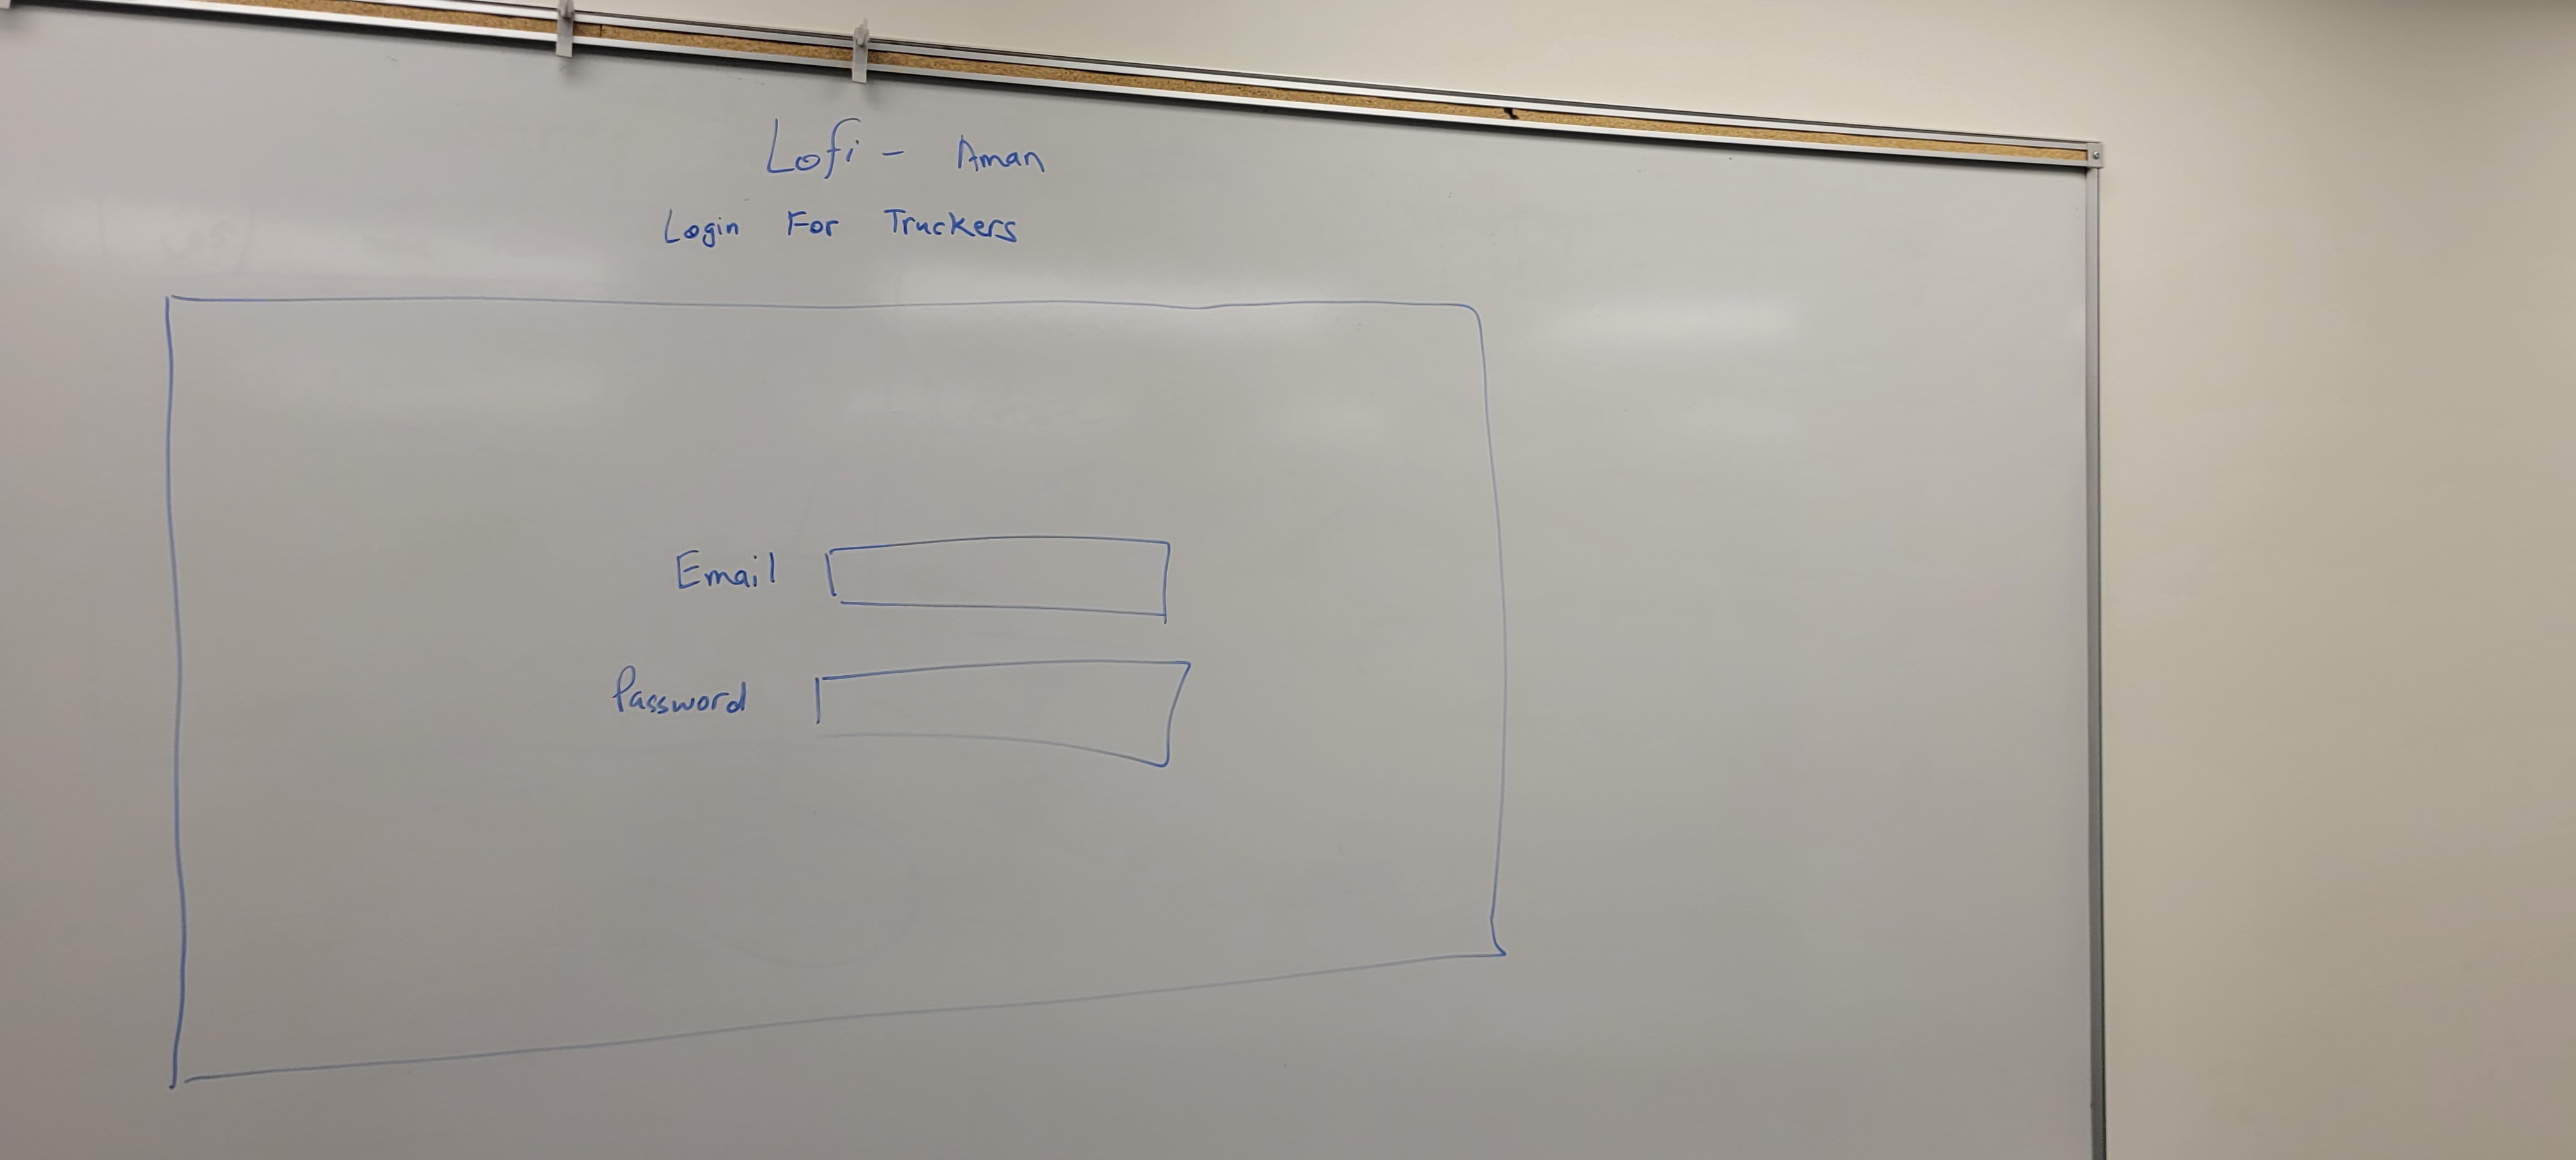 Lofi - Aman
Login For Truckers
Email
Password